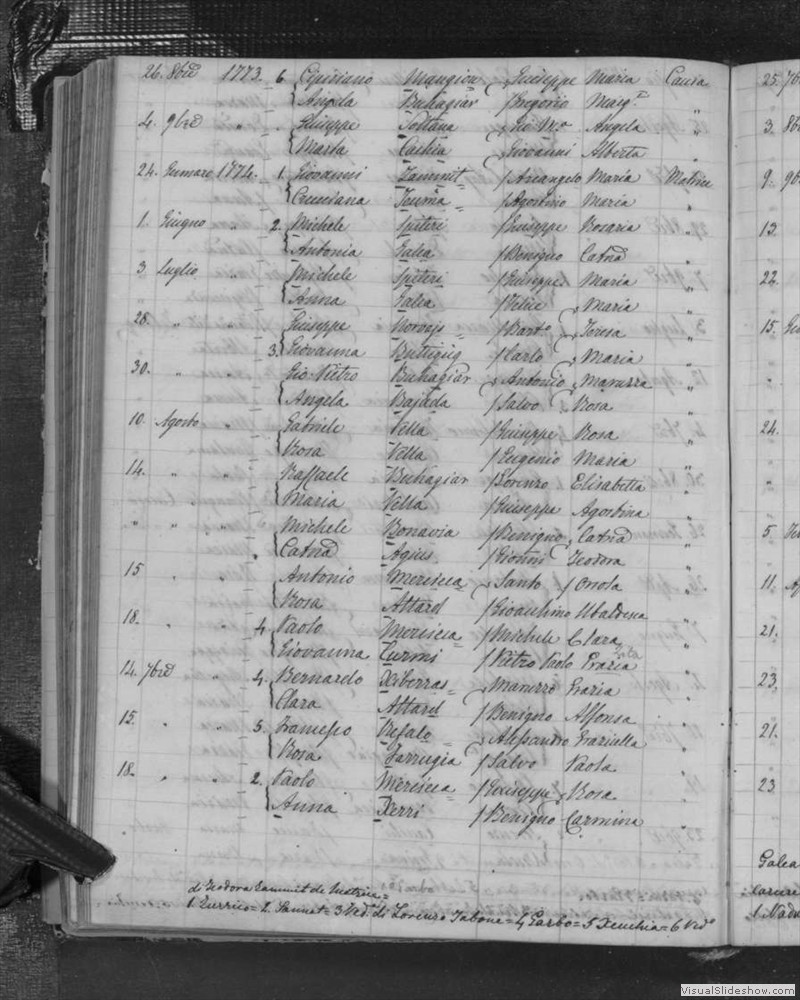 26. 8bre 1773. 6 Cipriano Mangion Giuseppe Maria Caura
Angela Buhagiar Gregorio Marg.a „
4. 9bre „ Giuseppe Fontana Gio M.o Angela
Maria Cachia Giovanni Alberta „
24. Gennaro 1774. 1. Giovanni Zammit Arcangelo Maria Matrice
Cruciana Tauma Agostino Maria „
1. Giugno „ 2. Michele Spiteri Giuseppe Rosaria „
Antonia Galea Benigno Catna
3 Luglio „ Michele Spiteri Giuseppe Maria „
„ Anna Galea Felice Maria „
28. „ Giuseppe Barto Teresa „
3. Giovanna Buttigieg Carlo Maria „
30. „ Gio Pietro Buhagiar Antonio Maruzza „
Angela Bajada Salvo Rosa „
10. Agosto „ Gabriele Vella Giuseppe Rosa „
Rosa Vella Eugenio Maria
14. „ „ Raffaele Buhagiar Lorenzo Elisabetta „
Maria Vella Giuseppe Agostina
„ „ „ Michele Bonavia Benigno Catna „
Catna Agius Gionni Teodora
15 „ Antonio Mercieca Santo Orsola „
Rosa Attard Gioachino Ubaldesca
18. „ 4. Paolo Mercieca Michele Clara „
Giovanna Curmi Pietro Paolo Grazia
14. 7bre „ 4. Bernardo Xiberras Maruzzo Grazia „
Clara Attard Benigno Alfonsa
15. „ „ 5. Francesco Refalo Alessandro Graziella „
Rosa Farrugia Salvo Paola
18. „ „ 2. Paolo Mercieca Giuseppe Rosa „
Anna Xerri Benigno Carmina
di Teodora Zammit de Matrice
1 Gurrico = 2. Sannat = 3 Ved. di Lorenzo Tabone = 4 Garbo = 5 Xeuchia = 6 Ved.o
25. 7b
3. 8b
9. 9b
13.
22.
15.
24.
5
11.
21.
23.
21.
23
Galea
1. Nadu
VisualSlideshow.com